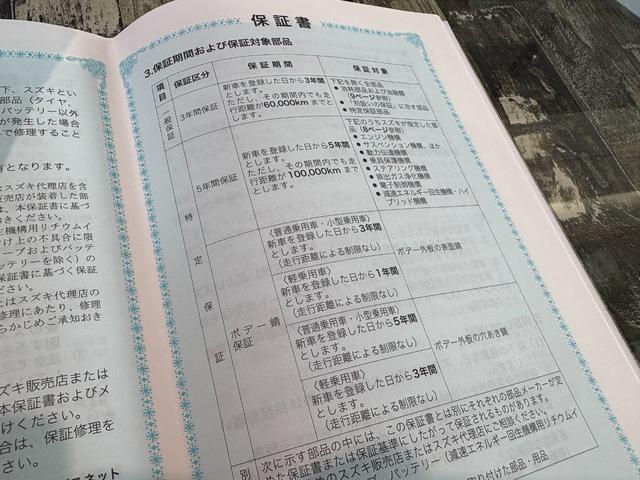 下、スズキとい
部品（タイヤ、
バッテリー以外
が発生した場合
で修理すること
となります。
スズキ代理店を含
販売店が装着した部
は、本保証書に基づ
きください。
生機構用リチウムイ
け上の不具合に限
ープおよびバッテ
ッテリーを除く）の
保証書に基づく保証
とはスズキ代理店の
修理にあたり、修理
らかじめご承知おき
ズキ販売店または
本保証書およびメ
けください。
合は、保証修理を
さい。
保証書
3.保証期間および保証対象部品
項目
保証区分
保証期間
保証対象
一般保証
3年間保証
新車を登録した日から3年間
とします。
ただし、その期間内でも走
行距離が60,000kmまでと
します。
下記を除く全部品
●消耗部品および油脂類
（9ページ参照）
●「別扱いの保証」に示す部品
●特定保証部品
特定保証
5年間保証
新車を登録した日から5年間
とします。
ただし、その期間内でも走
行距離が100,000kmまでと
します。
下記のうちスズキが指定した部
品（8ページ参照）
●エンジン機構
●サスペンション機構、ほか
●動力伝達機構
●乗員保護機構
●ステアリング機構
●排出ガス浄化機構
●電子制御機構
●減速エネルギー回生機構・ハイ
ブリッド機構
ボデー錆
保証
〈普通乗用車・小型乗用車〉
新車を登録した日から3年間
とします。
（走行距離による制限なし）
ボデー外板の表面錆
〈軽乗用車〉
新車を登録した日から1年間
とします。
（走行距離による制限なし）
〈普通乗用車・小型乗用車〉
新車を登録した日から5年間
とします。
（走行距離による制限なし）
ボデー外板の穴あき錆
〈軽乗用車〉
新車を登録した日から3年間
とします。
（走行距離による制限なし）
別
次に示す部品の中には、この保証書とは別にそれぞれの部品メーカーが定
めた保証書または保証基準にしたがって保証されるものがあります。
スズキ販売店またはスズキ代理店にご相談ください。
バッテリー（減速エネルギー回生機構用リチウムイ
取り付けた部品・用品